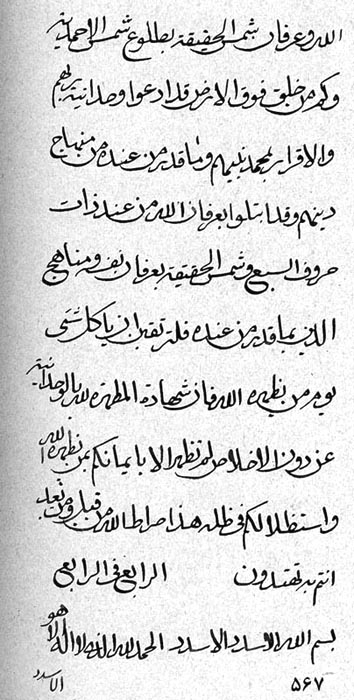 الله وعرفان شمس الحقيقة بطلوع شمس الاحمدية
وكم من خلق فوق الارض قد ادعوا وحدانية ربهم
والاقرار بمحمد نبيهم وما قدر من عنده من منهاج
دينهم وقد ابتلوا بعرفان الله من عند ذات
حروف السبع وشمس الحقيقة بعرفان نفسه ومناهج
الدين بما قدر من عنده فلتر تقبن ان يا كل شىء
يوم من يظهره الله فان شهادة المطهرة لله بالوحدانية
عن دون الاخلاص لم تظهر الا بايمانكم بمن يظهره الله
واستظلالكم فى ظله هذا صراط الله من قبل ومن بعد
انتم به تهتدون الرابع فى الرابع
بسم الله الاسدد الاسدد الحمد لله الذى لا اله الا هو
الاسدد ۵۶۷